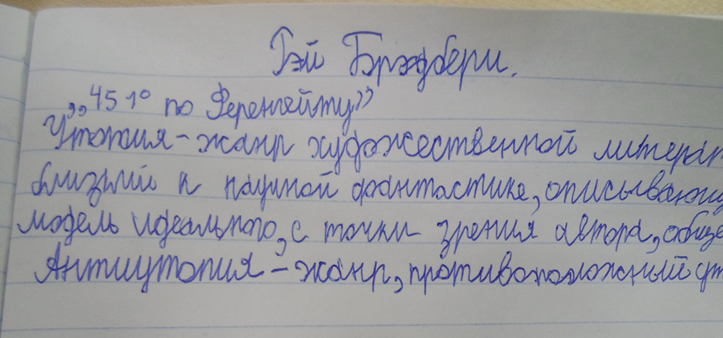 Гэй Брэдбери.
„451° по Ференгейту”
Утопия - жанр художественной литерат
близкий к научной фантастике, описывающи
модель идеального, с точки зрения автора, обще
Антиутопия - жанр, противоположный ут